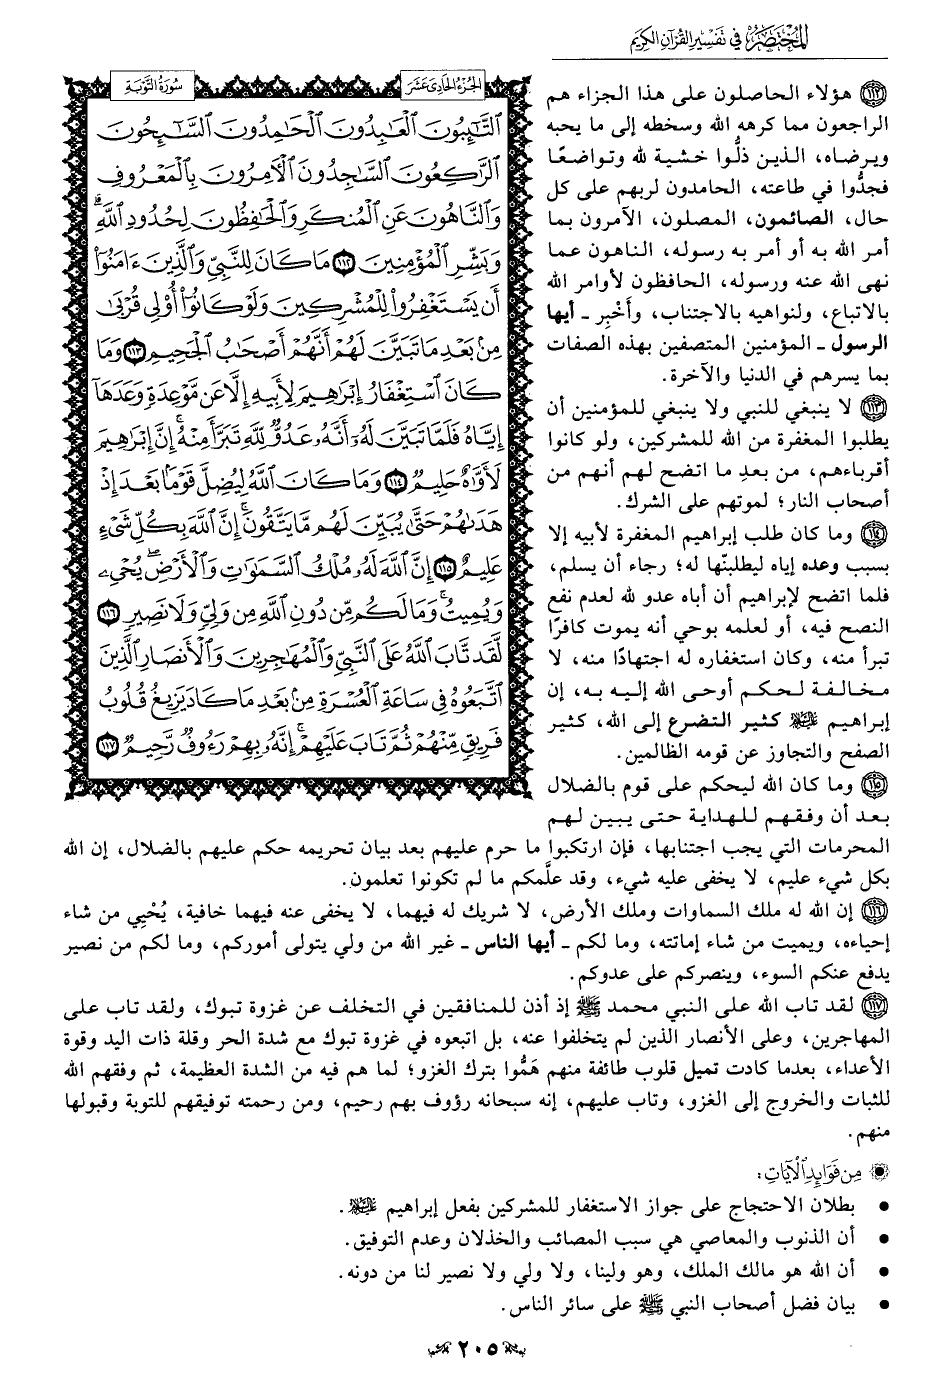 المختصر في تفسير القرآن الكريم
الجزء الحادي عشر
سورة التوبة
ٱلتَّٰٓئِبُونَ ٱلْعَٰبِدُونَ ٱلْحَٰمِدُونَ ٱلسَّٰٓئِحُونَ
ٱلرَّٰكِعُونَ ٱلسَّٰجِدُونَ ٱلْءَامِرُونَ بِٱلْمَعْرُوفِ
وَٱلنَّاهُونَ عَنِ ٱلْمُنكَرِ وَٱلْحَٰفِظُونَ لِحُدُودِ ٱللَّهِۗ
وَبَشِّرِ ٱلْمُؤْمِنِينَ ١١٢ مَا كَانَ لِلنَّبِيِّ وَٱلَّذِينَ ءَامَنُوٓاْ
أَن يَسْتَغْفِرُواْ لِلْمُشْرِكِينَ وَلَوْ كَانُوٓاْ أُوْلِي قُرْبَىٰ
مِنۢ بَعْدِ مَا تَبَيَّنَ لَهُمْ أَنَّهُمْ أَصْحَٰبُ ٱلْجَحِيمِ ١١٣ وَمَا
كَانَ ٱسْتِغْفَارُ إِبْرَٰهِيمَ لِأَبِيهِ إِلَّا عَن مَّوْعِدَةٍ وَعَدَهَآ
إِيَّاهُ فَلَمَّا تَبَيَّنَ لَهُۥٓ أَنَّهُۥ عَدُوٌّ لِّلَّهِ تَبَرَّأَ مِنْهُۚ إِنَّ إِبْرَٰهِيمَ
لَأَوَّٰهٌ حَلِيمٌ ١١٤ وَمَا كَانَ ٱللَّهُ لِيُضِلَّ قَوْمَۢا بَعْدَ إِذْ
هَدَىٰهُمْ حَتَّىٰ يُبَيِّنَ لَهُم مَّا يَتَّقُونَۚ إِنَّ ٱللَّهَ بِكُلِّ شَيْءٍ
عَلِيمٌ ١١٥ إِنَّ ٱللَّهَ لَهُۥ مُلْكُ ٱلسَّمَٰوَٰتِ وَٱلْأَرْضِۖ يُحْيِۦ
وَيُمِيتُۚ وَمَا لَكُم مِّن دُونِ ٱللَّهِ مِن وَلِيٍّ وَلَا نَصِيرٍ ١١٦
لَّقَد تَّابَ ٱللَّهُ عَلَى ٱلنَّبِيِّ وَٱلْمُهَٰجِرِينَ وَٱلْأَنصَارِ ٱلَّذِينَ
ٱتَّبَعُوهُ فِي سَاعَةِ ٱلْعُسْرَةِ مِنۢ بَعْدِ مَا كَادَ يَزِيغُ قُلُوبُ
فَرِيقٍ مِّنْهُمْ ثُمَّ تَابَ عَلَيْهِمْۚ إِنَّهُۥ بِهِمْ رَءُوفٌ رَّحِيمٌ ١١٧
١١٢ هؤلاء الحاصلون على هذا الجزاء هم
الراجعون مما كرهه الله وسخطه إلى ما يحبه
ويرضاه، الذين ذلُّوا خشية لله وتواضعًا
فجدُّوا في طاعته، الحامدون لربهم على كل
حال، الصائمون، المصلون، الآمرون بما
أمر الله به أو أمر به رسوله، الناهون عما
نهى الله عنه ورسوله، الحافظون لأوامر الله
بالاتباع، ولنواهيه بالاجتناب، وأَخْبِر ـ أيها
الرسول ـ المؤمنين المتصفين بهذه الصفات
بما يسرهم في الدنيا والآخرة.
١١٣ لا ينبغي للنبي ولا ينبغي للمؤمنين أن
يطلبوا المغفرة من الله للمشركين، ولو كانوا
أقرباءهم، من بعدِ ما اتضح لهم أنهم من
أصحاب النار؛ لموتهم على الشرك.
١١٤ وما كان طلب إبراهيم المغفرة لأبيه إلا
بسبب وعده إياه ليطلبنّها له؛ رجاء أن يسلم،
فلما اتضح لإبراهيم أن أباه عدو لله لعدم نفع
النصح فيه، أو لعلمه بوحي أنه يموت كافرًا
تبرأ منه، وكان استغفاره له اجتهادًا منه، لا
مخالفة لحكم أوحى الله إليه به، إن
إبراهيم عليه السلام كثير التضرع إلى الله، كثير
الصفح والتجاوز عن قومه الظالمين.
١١٥ وما كان الله ليحكم على قوم بالضلال
بعد أن وفقهم للهداية حتى يبين لهم
المحرمات التي يجب اجتنابها، فإن ارتكبوا ما حرم عليهم بعد بيان تحريمه حكم عليهم بالضلال، إن الله
بكل شيء عليم، لا يخفى عليه شيء، وقد علَّمكم ما لم تكونوا تعلمون.
١١٦ إن الله له ملك السماوات وملك الأرض، لا شريك له فيهما، لا يخفى عنه فيهما خافية، يُحْيِي من شاء
إحياءه، ويميت من شاء إماتته، وما لكم ـ أيها الناس ـ غير الله من ولي يتولى أموركم، وما لكم من نصير
يدفع عنكم السوء، وينصركم على عدوكم.
١١٧ لقد تاب الله على النبي محمد ﷺ إذ أذن للمنافقين في التخلف عن غزوة تبوك، ولقد تاب على
المهاجرين، وعلى الأنصار الذين لم يتخلفوا عنه، بل اتبعوه في غزوة تبوك مع شدة الحر وقلة ذات اليد وقوة
الأعداء، بعدما كادت تميل قلوب طائفة منهم هَمُّوا بترك الغزو؛ لما هم فيه من الشدة العظيمة، ثم وفقهم الله
للثبات والخروج إلى الغزو، وتاب عليهم، إنه سبحانه رؤوف بهم رحيم، ومن رحمته توفيقهم للتوبة وقبولها
منهم.
من فوائد الآيات:
• بطلان الاحتجاج على جواز الاستغفار للمشركين بفعل إبراهيم عليه السلام.
• أن الذنوب والمعاصي هي سبب المصائب والخذلان وعدم التوفيق.
• أن الله هو مالك الملك، وهو ولينا، ولا ولي ولا نصير لنا من دونه.
• بيان فضل أصحاب النبي ﷺ على سائر الناس.
٢٠٥